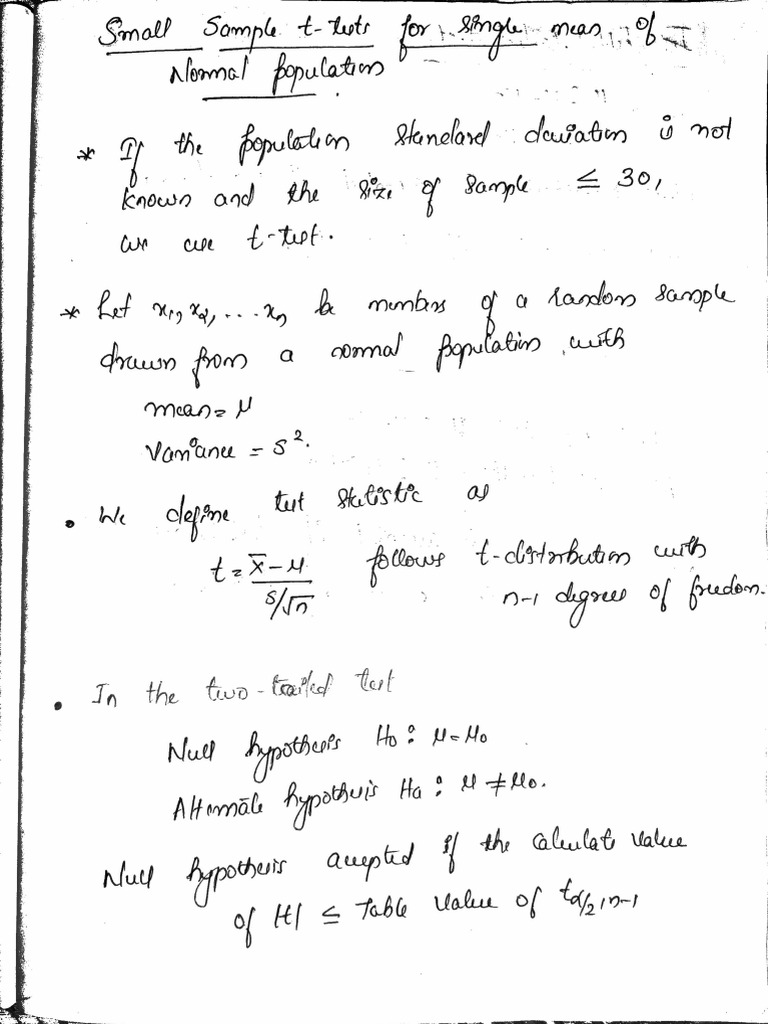 Small Sample t-tests for single mean of
Normal population
* If the population standard deviation is not
known and the size of sample ≤ 30,
we use t-test.
* Let x₁, x₂, ... xₙ be members of a random sample
drawn from a normal population with
mean = μ
Variance = s².
• We define test statistic as
t = (x̄ - μ) / (s/√n) follows t-distribution with
n-1 degrees of freedom.
• In the two-tailed test
Null hypothesis H₀ : μ = μ₀
Alternate hypothesis Hₐ : μ ≠ μ₀.
Null hypothesis accepted if the calculate value
of |t| ≤ Table value of t_α/2, n-1